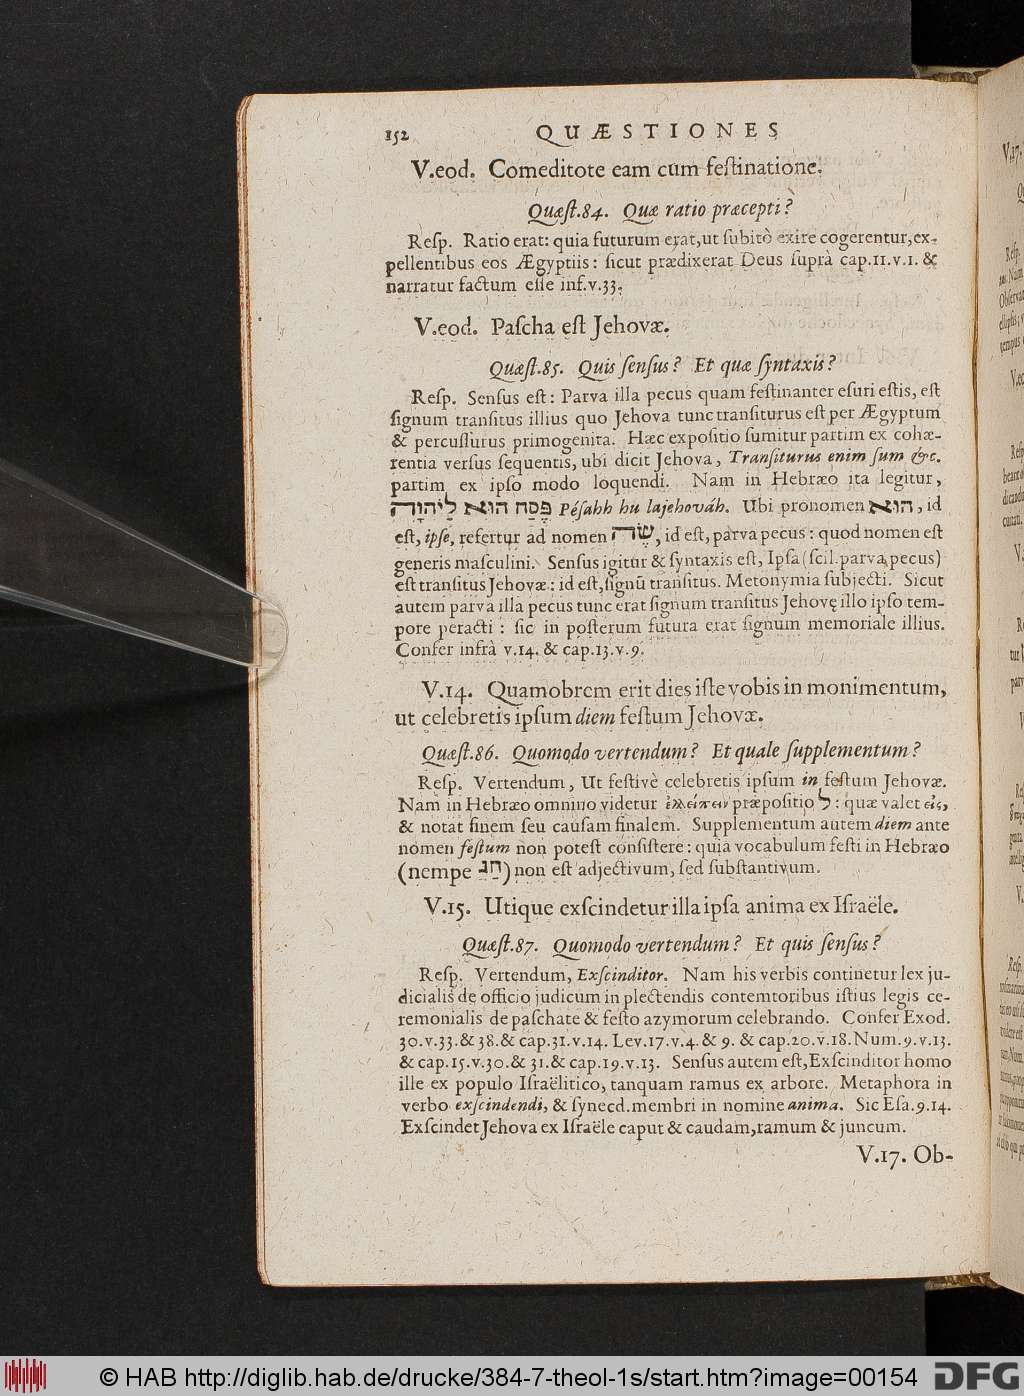 152 QUÆSTIONES
V.eod. Comeditote eam cum feſtinatione.
Quæſt.84. Quæ ratio præcepti?
Reſp. Ratio erat: quia futurum erat, ut ſubitò exire cogerentur, ex-
pellentibus eos Ægyptiis: ſicut prædixerat Deus ſuprà cap.11.v.1. &
narratur factum eſſe inf.v.33.
V.eod. Paſcha eſt Jehovæ.
Quæſt.85. Quis ſenſus? Et quæ ſyntaxis?
Reſp. Senſus eſt: Parva illa pecus quam feſtinanter eſuri eſtis, eſt
ſignum tranſitus illius quo Jehova tunc tranſiturus eſt per Ægyptum
& percuſſurus primogenita. Hæc expoſitio ſumitur partim ex cohæ-
rentia verſus ſequentis, ubi dicit Jehova, Tranſiturus enim ſum &c.
partim ex ipſo modo loquendi. Nam in Hebræo ita legitur,
פֶּסַח הוּא לַיהוָֹה Péſahh hu lajehováh. Ubi pronomen הוּא, id
eſt, ipſe, refertur ad nomen שֶׂה, id eſt, parva pecus: quod nomen eſt
generis maſculini. Senſus igitur & ſyntaxis eſt, Ipſa (ſcil. parva pecus)
eſt tranſitus Jehovæ: id eſt, ſignū tranſitus. Metonymia ſubjecti. Sicut
autem parva illa pecus tunc erat ſignum tranſitus Jehovę illo ipſo tem-
pore peracti: ſic in poſterum futura erat ſignum memoriale illius.
Confer infrà v.14. & cap.13.v.9.
V.14. Quamobrem erit dies iſte vobis in monimentum,
ut celebretis ipſum diem feſtum Jehovæ.
Quæſt.86. Quomodo vertendum? Et quale ſupplementum?
Reſp. Vertendum, Ut feſtivè celebretis ipſum in feſtum Jehovæ.
Nam in Hebræo omnino videtur ἐλλείπειν præpoſitio ל: quæ valet εἰς,
& notat finem ſeu cauſam finalem. Supplementum autem diem ante
nomen feſtum non poteſt conſiſtere: quia vocabulum feſti in Hebræo
(nempe חַג) non eſt adjectivum, ſed ſubſtantivum.
V.15. Utique exſcindetur illa ipſa anima ex Iſraële.
Quæſt.87. Quomodo vertendum? Et quis ſenſus?
Reſp. Vertendum, Exſcinditor. Nam his verbis continetur lex ju-
dicialis de officio judicum in plectendis contemtoribus iſtius legis ce-
remonialis de paſchate & feſto azymorum celebrando. Confer Exod.
30.v.33.&38.& cap.31.v.14. Lev.17.v.4.& 9. & cap.20.v.18. Num.9.v.13.
& cap.15.v.30.& 31.& cap.19.v.13. Senſus autem eſt, Exſcinditor homo
ille ex populo Iſraëlitico, tanquam ramus ex arbore. Metaphora in
verbo exſcindendi, & ſynecd. membri in nomine anima. Sic Eſa.9.14.
Exſcindet Jehova ex Iſraële caput & caudam, ramum & juncum.
V.17. Ob-
© HAB http://diglib.hab.de/drucke/384-7-theol-1s/start.htm?image=00154
DFG